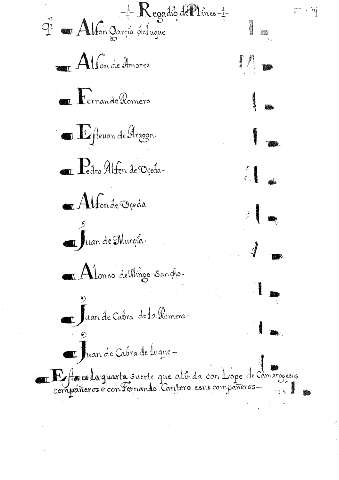 Regadio de Plines
Alfon García de Luque
Alfon de Amores
Fernando Romero
Esteuan de Aragon
Pedro Alfon de Vçeda
Alfon de Vçeda
Juan de Murçia
Alonso de Mingo Sancho
Juan de Cabra de la Romera
Juan de Cabra de Luque
Esta es la quarta suerte que alinda con Lope de Camargo e sus
compañeros e con Fernando Cantero e sus compañeros